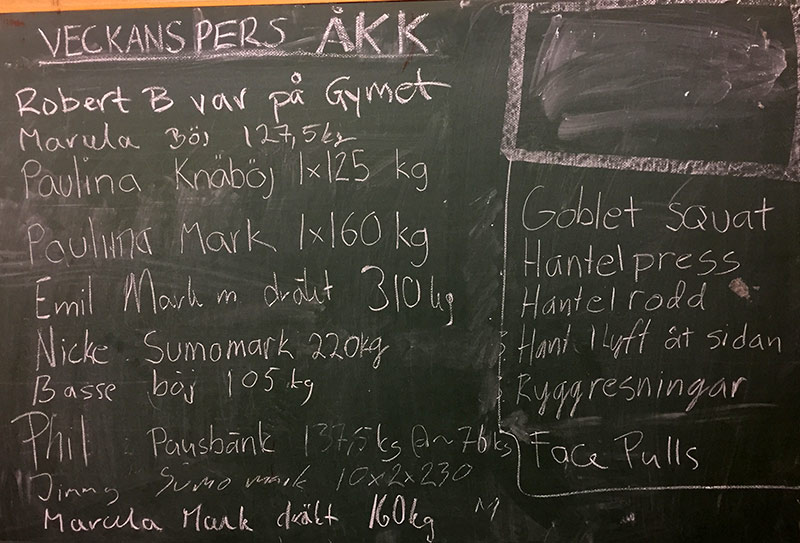 VECKANS PERS ÅKK
Robert B var på Gymet
Marcela Böj 127,5kg
Paulina Knäböj 1x125 kg
Paulina Mark 1x160 kg
Emil Mark m dräkt 310kg
Nicke Sumomark 220kg
Basse böj 105 kg
Phil Pausbänk 137,5kg @~76kg
Jimmy Sumo mark 10x2x230
Marcela Mark dräkt 160kg
Goblet squat
Hantelpress
Hantelrodd
Hant. lyft åt sidan
Ryggresningar
Face Pulls